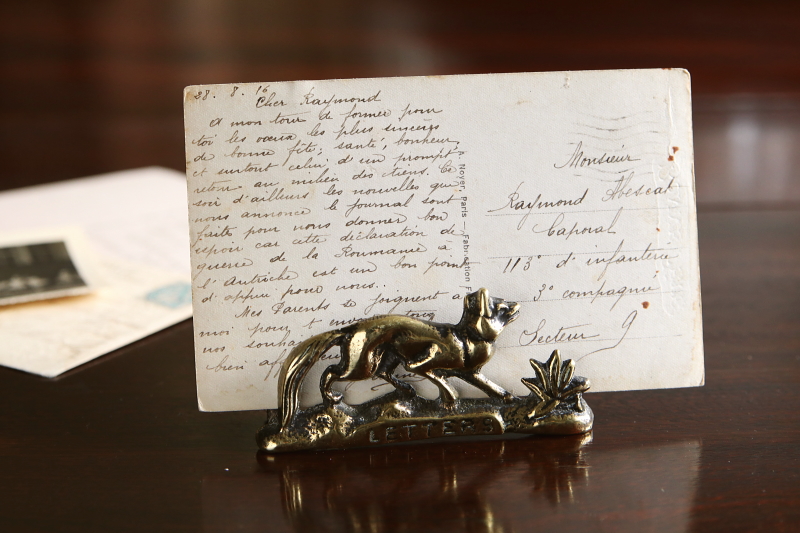 28. 8. 16
Cher Raymond
A mon tour de former pour
toi les voeux les plus sincères
de bonne fête; santé, bonheur,
et surtout celui d'un prompt
retour au milieu des tiens. Ce
soir d'ailleurs les nouvelles que
nous annonce le journal sont
faite pour nous donner bon
espoir car cette déclaration de
guerre de la Roumanie à
l'Autriche est un bon point
d'appui pour nous..
Mes Parents se joignent a
moi pour t'
nos
bien
A. Noyer, Paris — Fabrication
Monsieur
Raymond Abescat
Caporal
113e d'infanterie
3e compagnie
Secteur 9
LETTERS